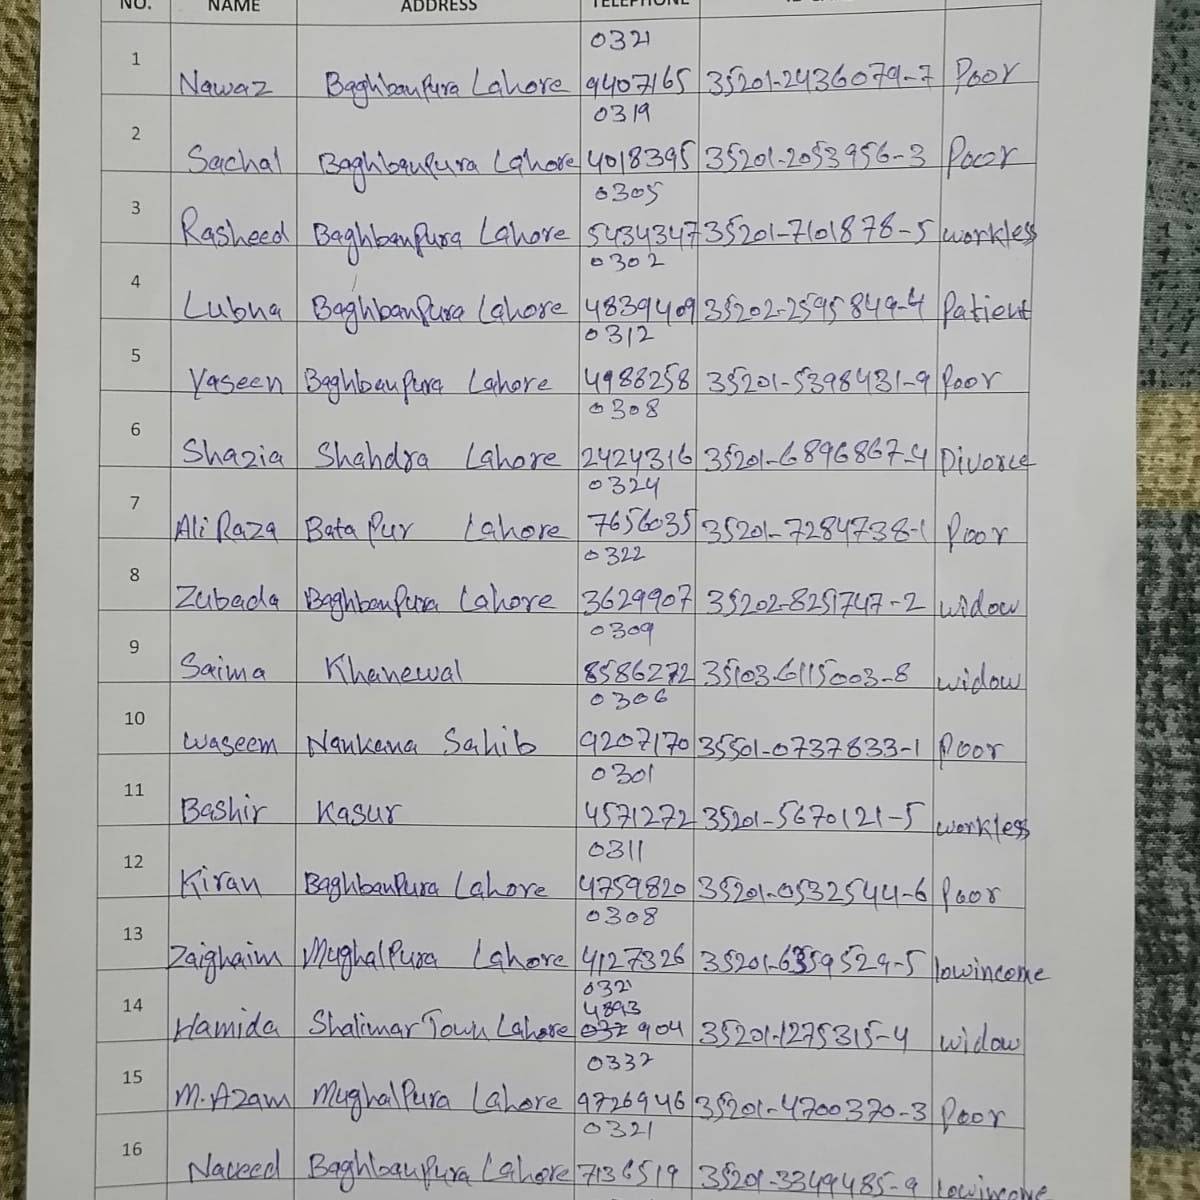 NO. NAME ADDRESS TELEPHONE
1 Nawaz Baghbanpura Lahore 0321 9407165 35201-2436079-7 Poor
2 Sachal Baghbanpura Lahore 0319 4018395 35201-2053956-3 Poor
3 Rasheed Baghbanpura Lahore 0305 5434347 35201-7101878-5 workless
4 Lubna Baghbanpura Lahore 0302 4839409 35202-2595849-4 Patient
5 Yaseen Baghbanpura Lahore 0312 4988258 35201-5398431-9 Poor
6 Shazia Shahdra Lahore 0308 2424316 35201-6896867-4 Divorce
7 Ali Raza Bata Pur Lahore 0324 7656035 35201-7284738-1 Poor
8 Zubada Baghbanpura Lahore 0322 3629907 35202-8251747-2 widow
9 Saima Khanewal 0309 8586272 35103-6115003-8 widow
10 Waseem Nankana Sahib 0306 9207170 35501-0737833-1 Poor
11 Bashir Kasur 0301 4571272 35201-5670121-5 workless
12 Kiran Baghbanpura Lahore 0311 4759820 35201-0532544-6 Poor
13 Zaighaim MughalPura Lahore 0308 4127326 35201-6359529-5 lowincome
14 Hamida Shalimar Town Lahore 0321 4893 904 35201-1275315-4 widow
15 M.Azam MughalPura Lahore 0332 9726946 35201-4700370-3 Poor
16 Naveed Baghbanpura Lahore 0321 7136519 35201-3349485-9 lowincome